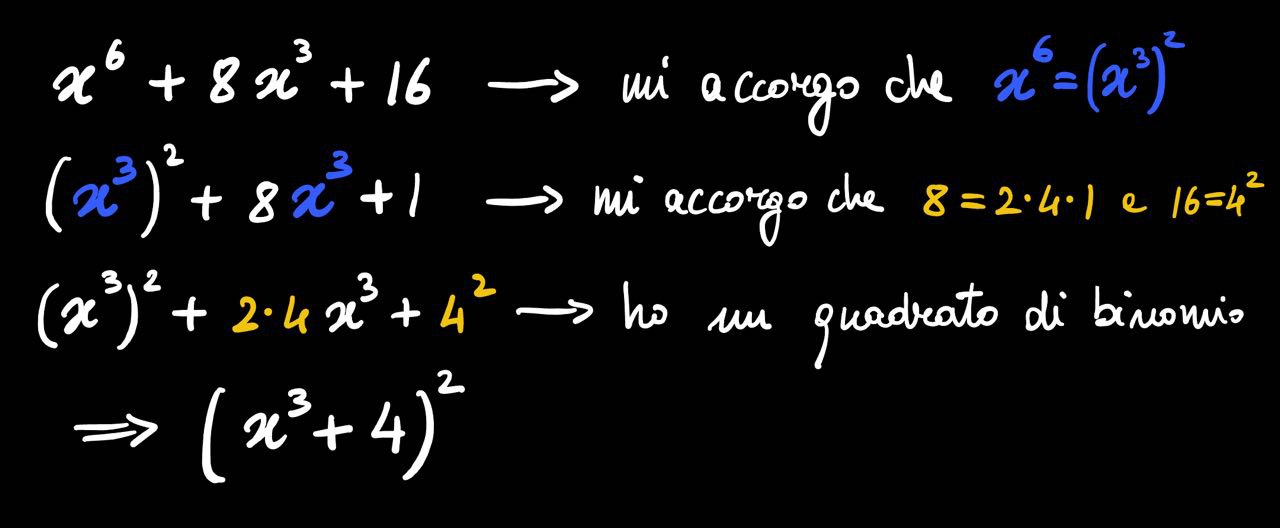 x⁶ + 8x³ + 16 → mi accorgo che x⁶ = (x³)²
(x³)² + 8x³ + 1 → mi accorgo che 8 = 2·4·1 e 16 = 4²
(x³)² + 2·4x³ + 4² → ho un quadrato di binomio
⇒ (x³ + 4)²